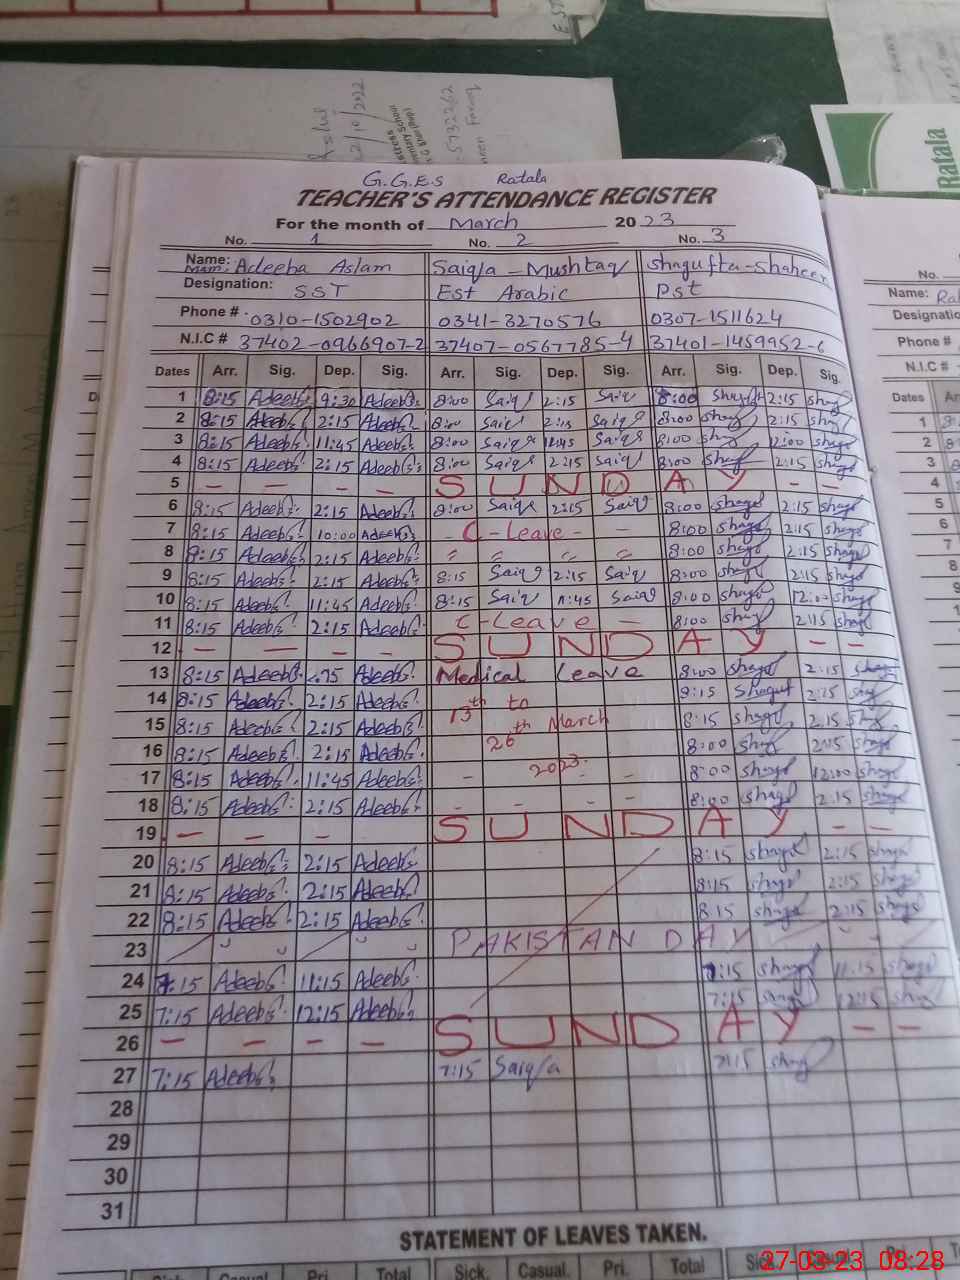 G.G.E.S Ratala
TEACHER'S ATTENDANCE REGISTER
For the month of March 2023
No. 1 No. 2 No. 3
Name: Mam: Adeeba Aslam Saiqa - Mushtaq Shagufta-Shaheen
Designation: SST Est Arabic Pst
Phone # 0310-1502902 0341-3270576 0307-1511624
N.I.C # 37402-0966907-2 37407-0567785-4 37401-1459952-6
Dates Arr. Sig. Dep. Sig. Arr. Sig. Dep. Sig. Arr. Sig. Dep. Sig.
1 8:15 Adeeba 9:30 Adeeba 8:00 Saiq 2:15 Saiq 8:00 Shaguf 2:15 shagf
2 8:15 Adeeba 2:15 Adeeba 8:00 Saiq 2:15 Saiq 8:00 shagf 2:15 shagf
3 8:15 Adeeba 11:45 Adeeba 8:00 Saiq 11:45 Saiq 8:00 shagf 12:00 shagf
4 8:15 Adeeba 2:15 Adeeba 8:00 Saiq 2:15 Saiq 8:00 shagf 2:15 shagf
5 — — — — S U N D A Y — —
6 8:15 Adeeba 2:15 Adeeba 8:00 Saiq 2:15 Saiq 8:00 shagf 2:15 shagf
7 8:15 Adeeba 10:00 Adeeba - C - Leave - - 8:00 shagf 2:15 shagf
8 8:15 Adeeba 2:15 Adeeba " " " " 8:00 shagf 2:15 shagf
9 8:15 Adeeba 2:15 Adeeba 8:15 Saiq 2:15 Saiq 8:00 shagf 2:15 shagf
10 8:15 Adeeba 11:45 Adeeba 8:15 Saiq 11:45 Saiq 8:00 shagf 12:00 shagf
11 8:15 Adeeba 2:15 Adeeba C-Leave - 8:00 shagf 2:15 shagf
12 — — — — S U N D A Y — —
13 8:15 Adeeba Adeeba Medical Leave 8:00 shagf 2:15 shagf
14 8:15 Adeeba 2:15 Adeeba 13th to 8:15 Shaguf 2:15 shagf
15 8:15 Adeeba 2:15 Adeeba 26th March 8:15 shagf 2:15 shagf
16 8:15 Adeeba 2:15 Adeeba 8:00 shagf 2:15 shagf
17 8:15 Adeeba 11:45 Adeeba - 2023. - - 8:00 shagf 12:00 shagf
18 8:15 Adeeba 2:15 Adeeba - - - - 8:00 shagf 2:15 shagf
19 — — — S U N D A Y — —
20 8:15 Adeeba 2:15 Adeeba 8:15 shagf 2:15 shagf
21 8:15 Adeeba 2:15 Adeeba 8:15 shagf 2:15 shagf
22 8:15 Adeeba 2:15 Adeeba 8:15 shagf 2:15 shagf
23 PAKISTAN DAY
24 7:15 Adeeba 11:15 Adeeba 7:15 shagf 11:15 shagf
25 7:15 Adeeba 12:15 Adeeba 7:15 shagf 12:15 shagf
26 — — — — S U N D A Y — —
27 7:15 Adeeba 7:15 Saiqa 7:15 shagf
28
29
30
31
STATEMENT OF LEAVES TAKEN.
Casual Pri. Total Sick. Casual. Pri. Total Sick
Ratala
No.
Name:
Designation
Phone #
N.I.C #
Dates
1
2
3
4
5
6
7
8
9
12/10/2022
27-03-23 08:28